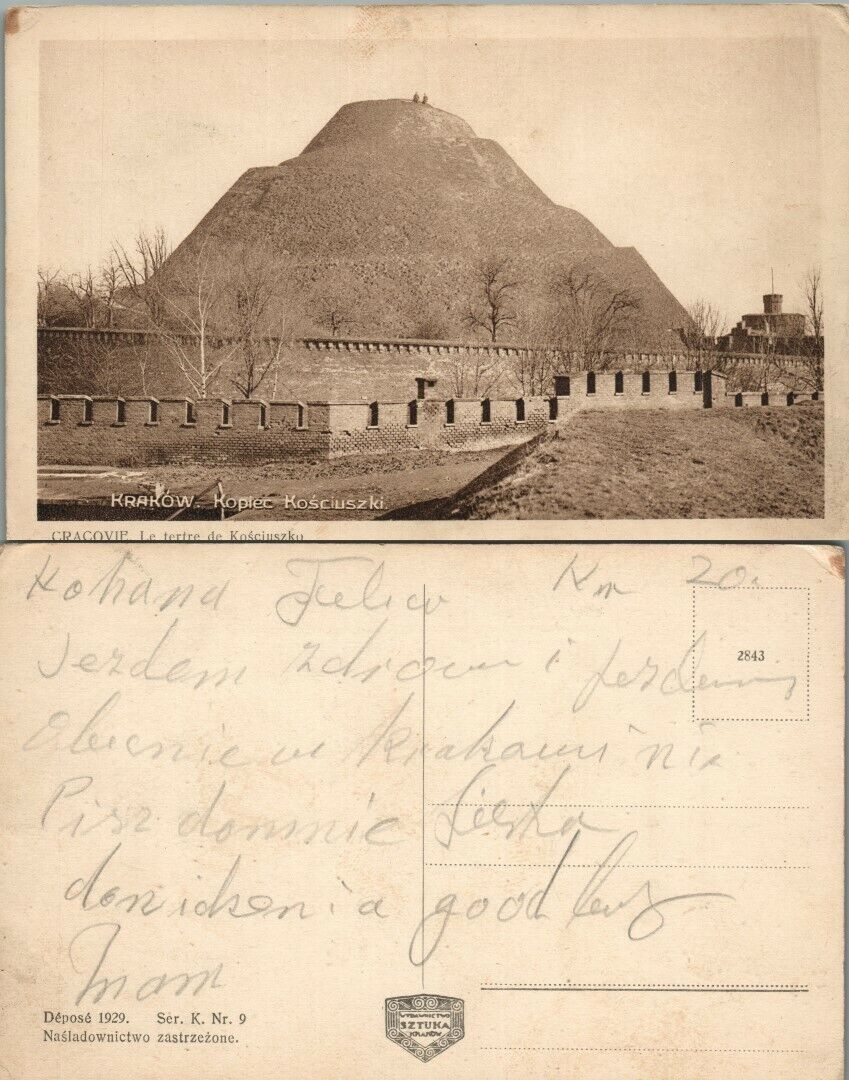 KRAKÓW. Kopiec Kościuszki.
CRACOVIE. Le tertre de Kościuszko
Kohana Kr 20.
Jezdem zdrowi i jezdemy
Obecnie w Krakowi ni
2843
Pisz domnie
dowidzenia good buy
Déposé 1929. Ser. K. Nr. 9
Naśladownictwo zastrzeżone.
WYDAWNICTWO
SZTUKA
KRAKÓW